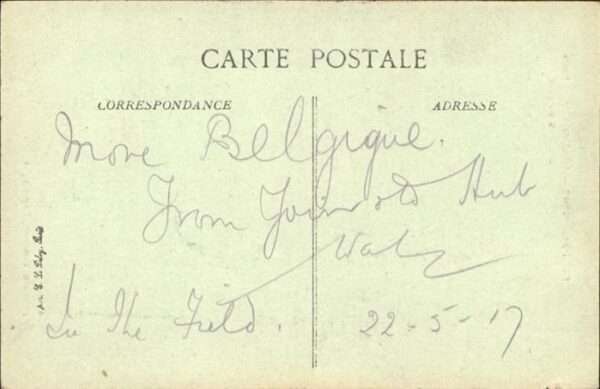 CARTE POSTALE
CORRESPONDANCE
ADRESSE
More Belgique.
From Your old Hub
Walt
In The Field. 22-5-17